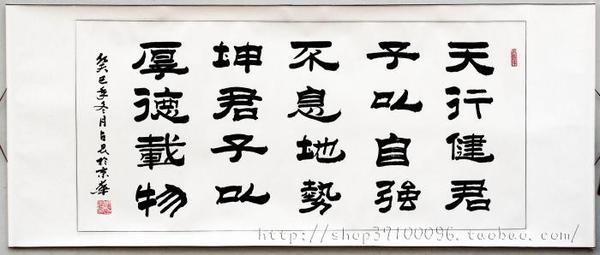 天行健君
子以自強
不息地勢
坤君子以
厚德載物
癸巳年冬月占民於京華
http://shop39100096.taobao.com/